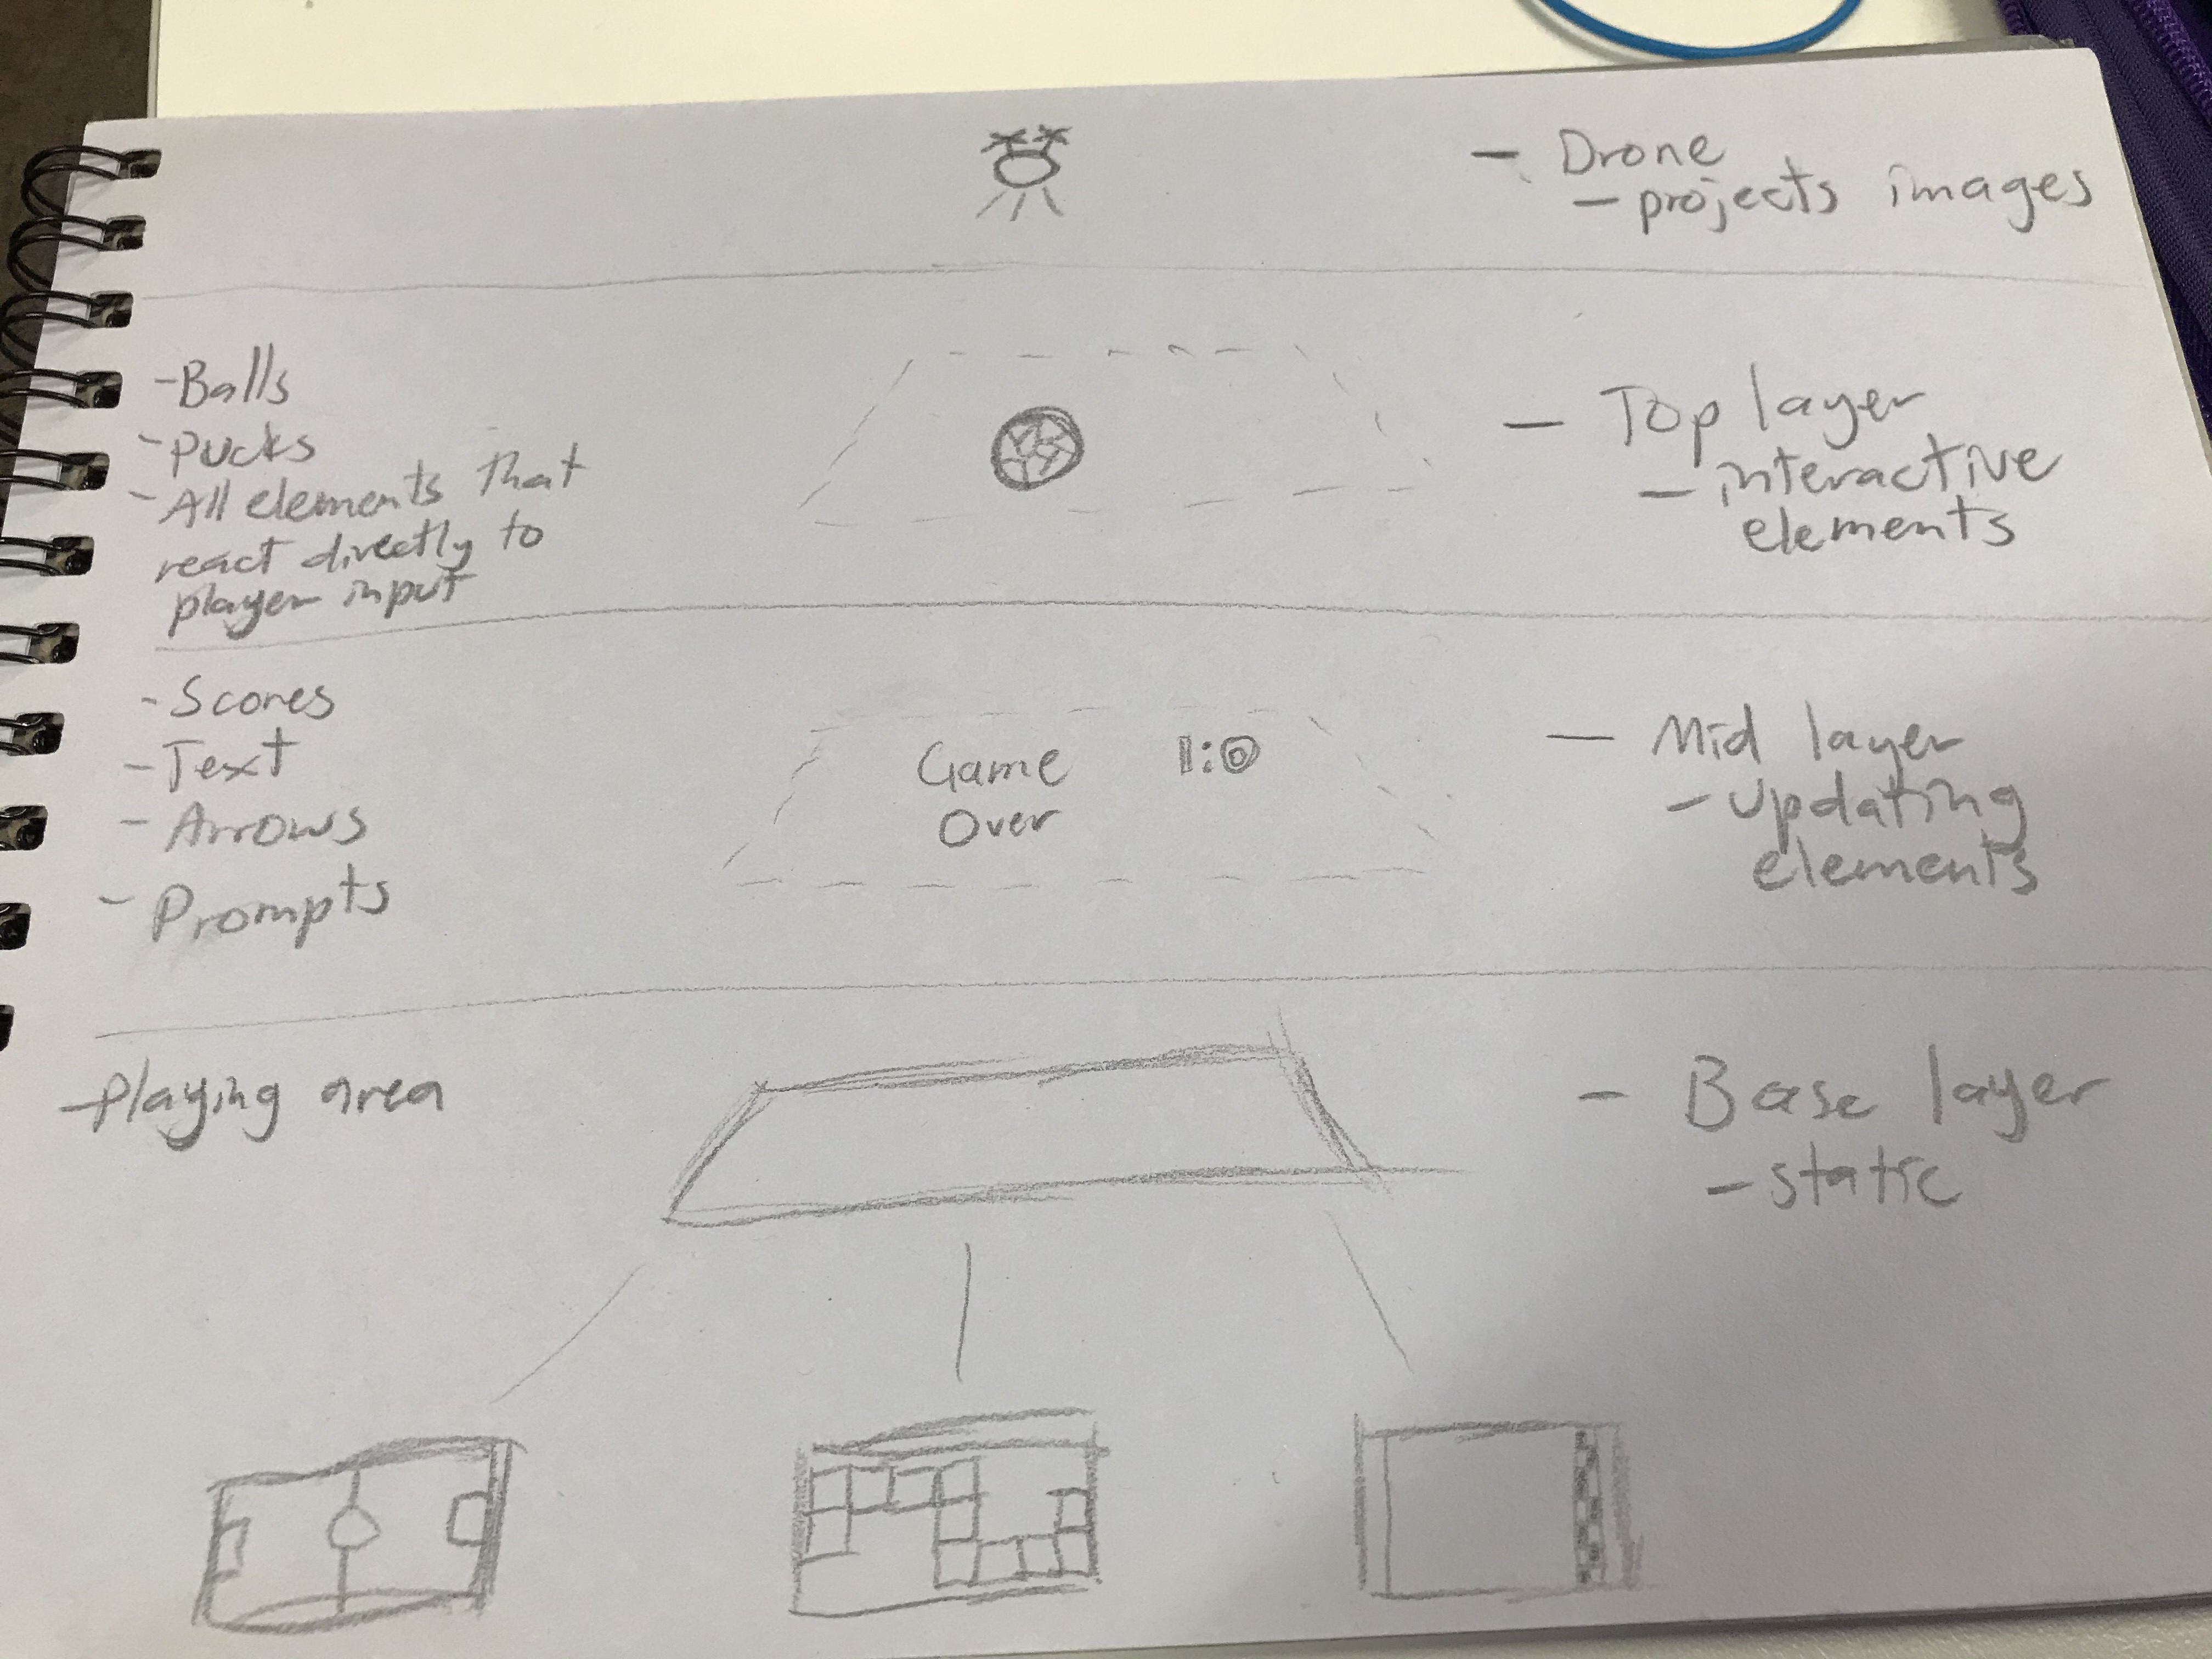 - Drone
- projects images
- Balls
- Pucks
- All elements that
react directly to
player input
- Top layer
- interactive
elements
- Scores
- Text
- Arrows
- Prompts
Game 1:0
Over
- Mid layer
- Updating
elements
- Playing area
- Base layer
- static